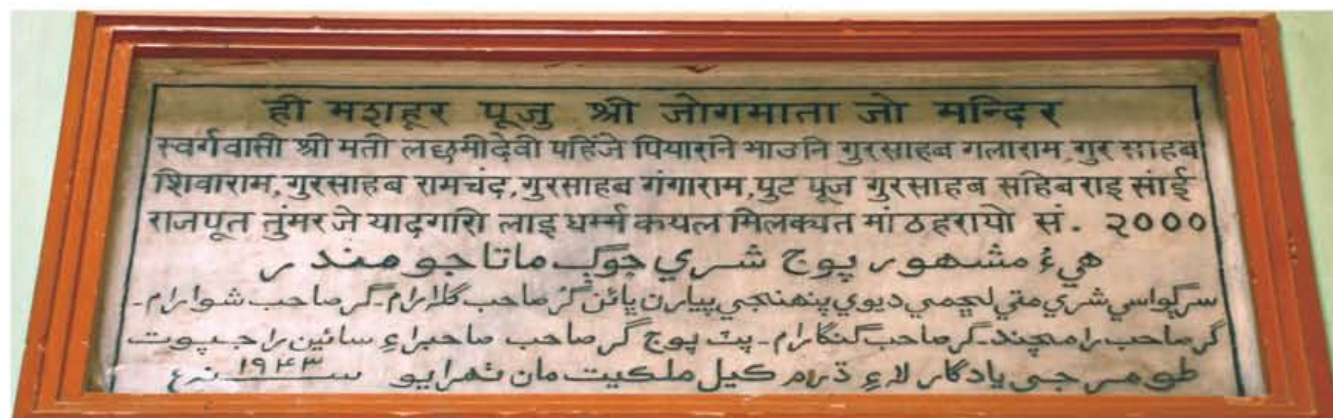 ही मशहूर पूजु श्री जोगमाता जो मन्दिर
स्वर्गवासी श्री मती लछमीदेवी पहिंजे पियारनि भाउनि गुरसाहब गलाराम, गुर साहब
शिवाराम, गुरसाहब रामचंद, गुरसाहब गंगाराम, पुट पूज गुरसाहब सहिबराइ सांई
राजपूत तुंमर जे यादगारि लाइ धर्म्म कयल मिलक्यत मां ठहरायो सं. २०००
هيءُ مشهور پوڄ شري جوڳ ماتا جو مندر
سرڳواسي شري متي لڇمي ديوي پنهنجي پيارن ڀائن گر صاحب گلارام۔ گر صاحب شوارام۔
گر صاحب رامچند۔ گر صاحب گنگارام۔ پٽ پوڄ گر صاحب صاحبراءِ سائين راجپوت
طومر جي يادگار لاءِ ڌرم ڪيل ملڪيت مان ٺهرايو سنه ۱۹۴۳ع